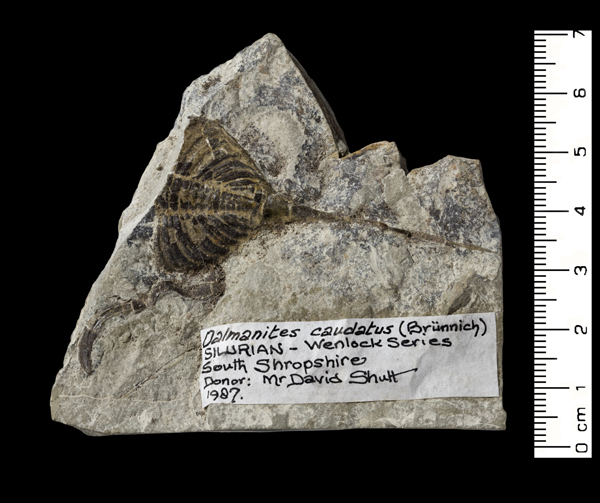 Dalmanites caudatus (Brünnich)
SILURIAN - Wenlock Series
South Shropshire,
Donor: Mr David Shutt
1987.
7
6
5
4
3
2
1
0 cm